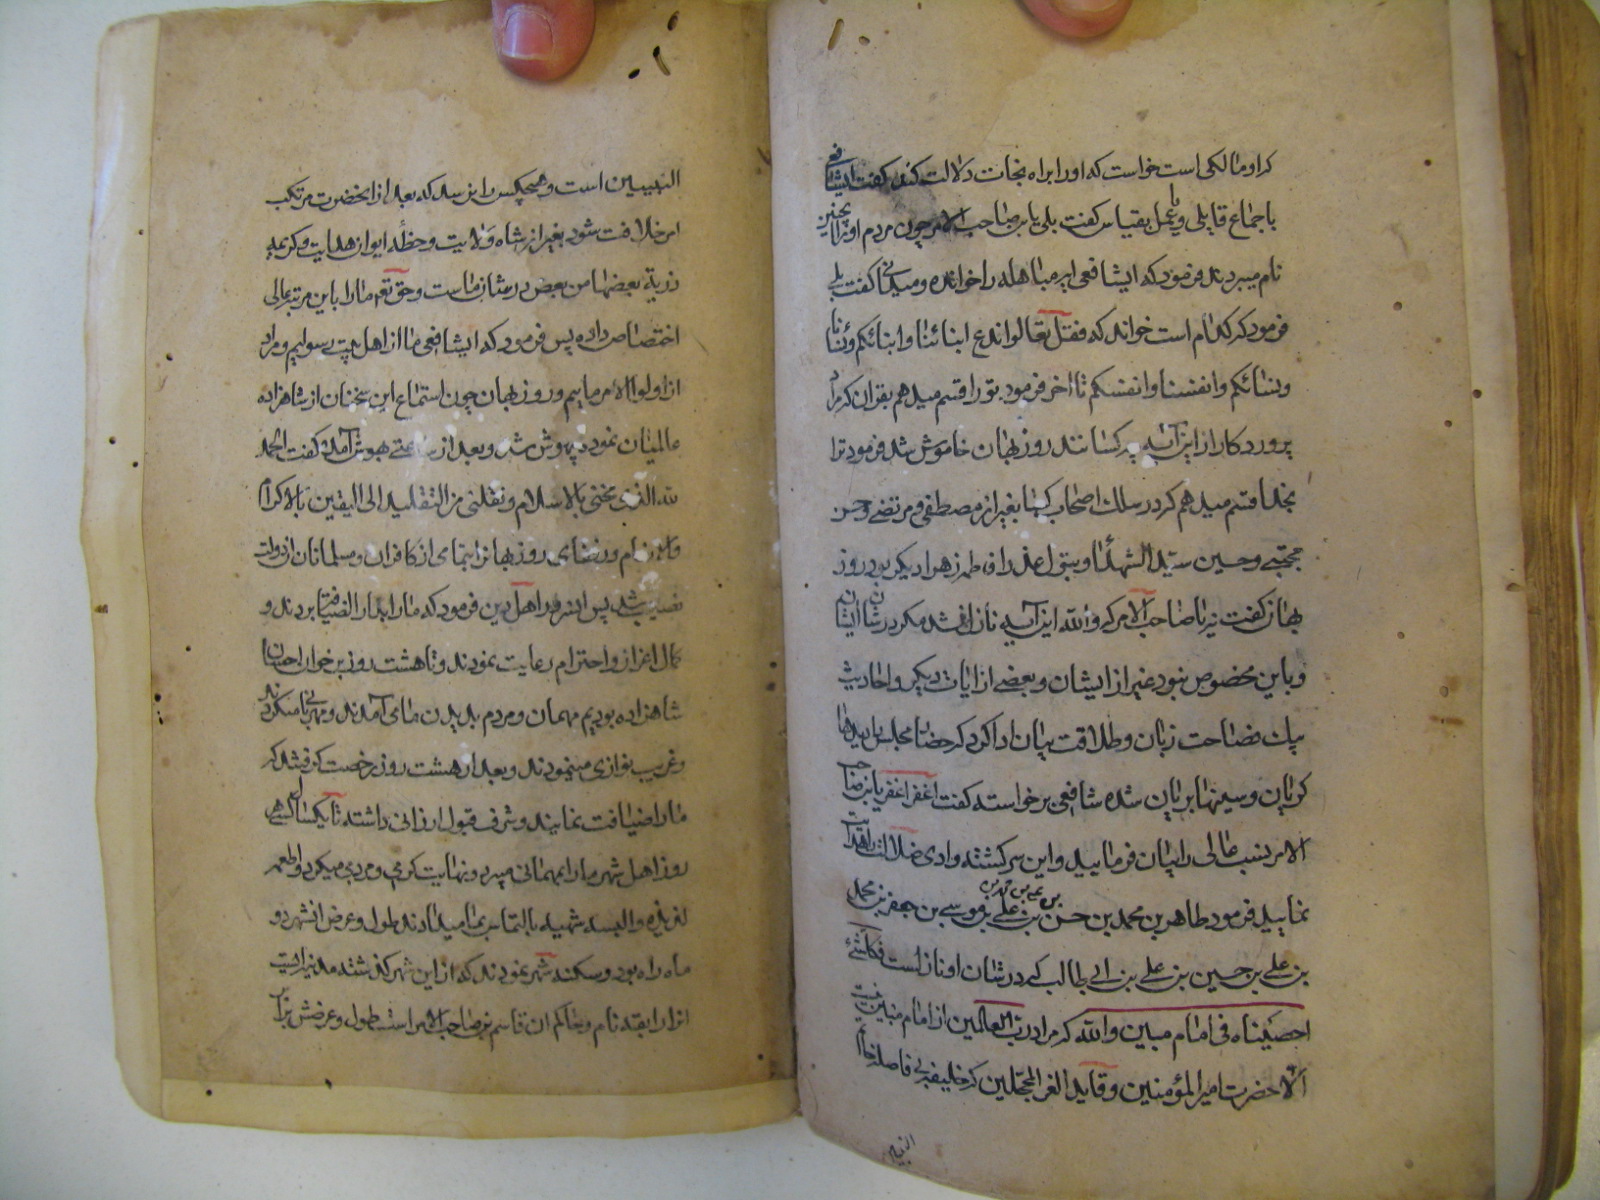 که او مالکی است خواست که او را براه نجات دلالت کند گفت ای شافعی
باجماع قایلی و بعمل بقیاس گفت بلی یا بن صاحب الامر چون مردم او را بچنین
نام میبردند فرمود که ای شافعی ایه مباهله را خوانده و میدانی گفت بلی
فرمود که کدام است خواند که فقل تعالوا ندع ابنائنا و ابنائکم و نسائنا
و نسائکم و انفسنا و انفسکم تا اخر فرمود تو را قسم میدهم بقران که مراد
پروردکار از این آیه چه کسانند روزبهان خاموش شد فرمود ترا
بخدا قسم میدهم که در سلک اصحاب کسا بغیر از مصطفی و مرتضی و حسن
مجتبی و حسین سید الشهدا و بتول عذرا فاطمه زهرا دیکر بود روز
بهان کفت نه یا صاحب الامر که والله این آیه نازل نشد مکر در شان ایشان
و باین مخصوص نبود غیر از ایشان و بعضی از ایات دیکر و احادیث
بیک فصاحت زبان و طلاقت بیان ادا کرد که حضار مجلس را دیدها
کریان و سینها بریان شده شافعی برخواسته کفت اغفر اغفر یا بن صاحب
الامر نسب عالی را بیان فرمایید و این سرکشته وادی ضلالت را هدایت
نمایید فرمود طاهر بن محمد بن حسن بن علی بن محمد بن علی بن موسی بن جعفر بن محمد
بن علی بن حسین بن علی بن ابی طالب که در شان او نازلست و کل شیء
احصیناه فی امام مبین والله که مراد رب العالمین از امام مبین نیست
الا حضرت امیر المؤمنین و قاید الغر المحجلین که خلیفه بی فاصله خاتم
النبیین
النبیین است و هیچکس را نرسد که بعد از انحضرت مرتکب
امر خلافت شود بغیر از شاه ولایت و خطه ایوان هدایت و کریمه
ذریة بعضها من بعض در شان ماست و حق تعم ما را باین مرتبه عالی
اختصاص داده پس فرمود که ای شافعی ما از اهل بیت رسولیم و مراد
از اولوا الامر ماییم و روزبهان چون استماع این سخنان از شاهزاده
عالمیان نمود بیهوش شد و بعد از ساعتی بهوش آمد و کفت الحمد
لله الذی منحنی بالاسلام و نقلنی من التقلید الی الیقین بالاکرام
روزبهان از کافران و مسلمانان از دولت
نصیب شد پس ان سرور اهل دین فرمود که ما را بدار الضیافة بردند و
کمال اعزاز و احترام رعایت نمودند و تا هشت روز بر خوان احسان
شاهزاده بودیم مهمان و مردم بدیدن ما می آمدند و مهربانی میکردند
و غریب نوازی مینمودند و بعد از هشت روز رخصت کرفتند که
ما را ضیافت نمایند و شرف قبول ارزانی داشته تا یکسال هر
روز اهل شهر ما را بمهمانی میبردند و نهایت کرمی و مردمی میکردند و اطعمه
لذیذه و البسه شهیه بالتماس بما میدادند طول و عرض ان شهر دو
ماه راه بود و سکنه شهر نمودند که از این شهر کذشته مدینه ایست
انرا رابقه نام و حاکم ان قاسم بن صاحب الامر است طول و عرضش برابر